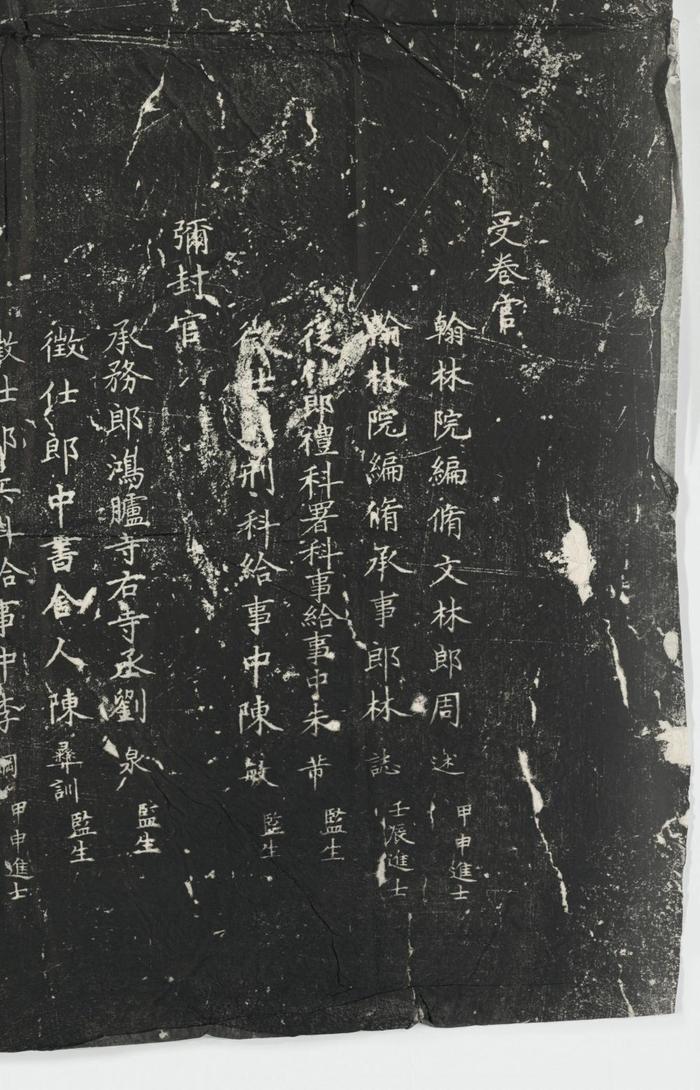 受卷官
翰林院編脩文林郎周 述 甲申進士
翰林院編脩承事郎林 誌 壬辰進士
從仕郎禮科署科事給事中朱 芾 監生
徵仕 刑科給事中陳 敏 監生
彌封官
承務郎鴻臚寺右寺丞劉 泉 監生
徵仕郎中書舍人陳 彞訓 監生
徵仕郎兵科給事中李 甲申進士